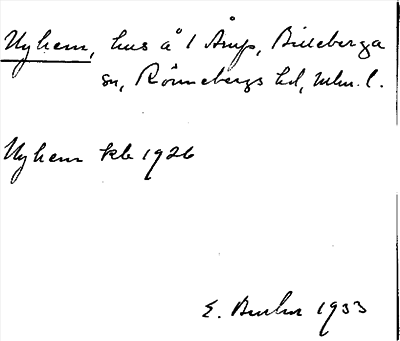 Nyhem, hus å 1 Åmp, Billeberga
sn, Rönnebergs hd, Mlm. l.
Nyhem kb 1926
E. 1933